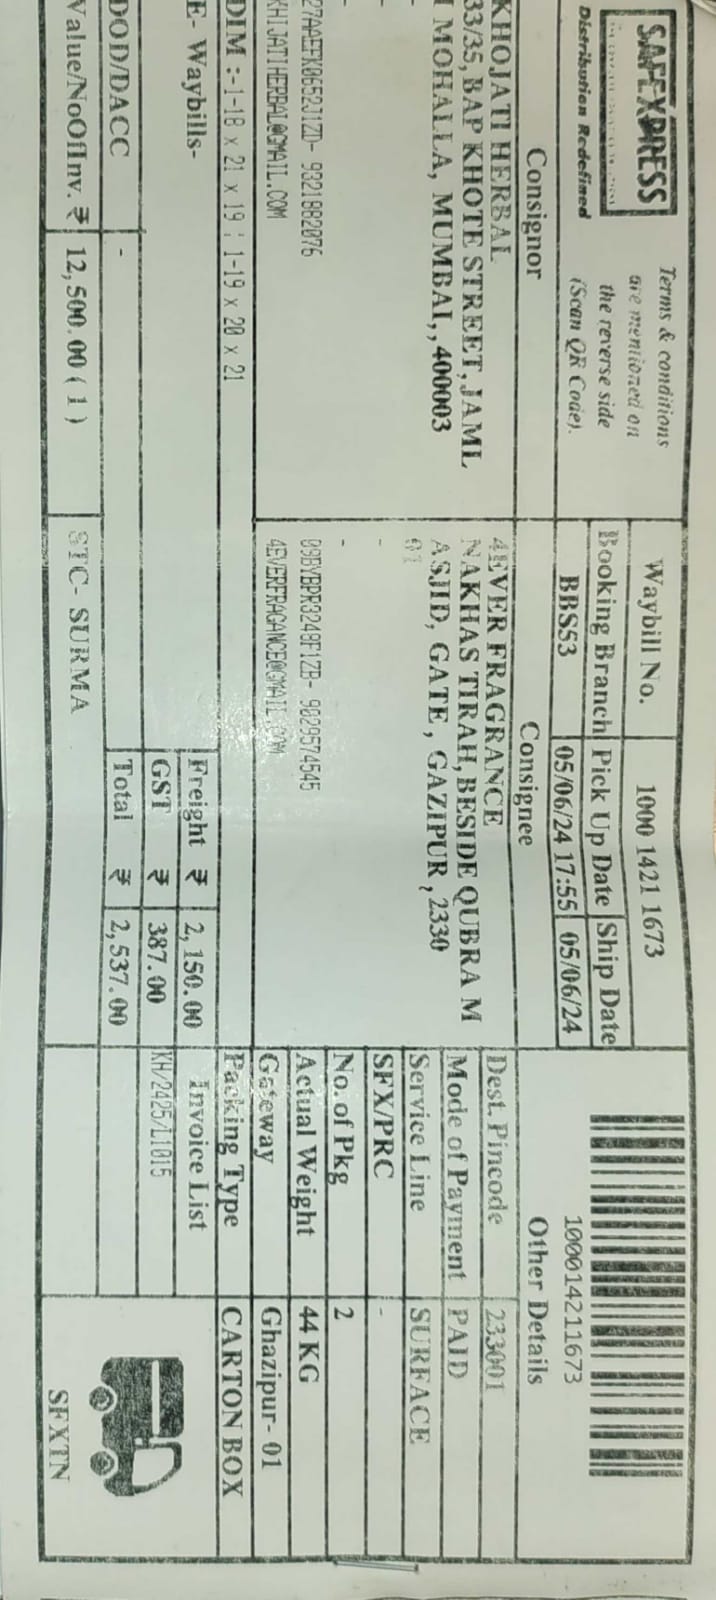 SAFEXPRESS
Distribution Redefined
Terms & conditions
are mentioned on
the reverse side
(Scan QR Code).
Waybill No.
1000 1421 1673
Booking Branch
Pick Up Date
Ship Date
BBS53
05/06/24 17:55
05/06/24
100014211673
Consignor
Consignee
Other Details
KHOJATI HERBAL
33/35, BAP KHOTE STREET, JAML
I MOHALLA, MUMBAI,, 400003
-
27AAEFK0652J1ZD- 9321882076
KHIJATIHERBAL@GMAIL.COM
4EVER FRAGRANCE
NAKHAS TIRAH, BESIDE QUBRA M
ASJID, GATE , GAZIPUR , 2330
01
-
-
09BYBPR3249F1ZB- 9029574545
4EVERFRAGANCE@GMAIL.COM
Dest. Pincode 233001
Mode of Payment PAID
Service Line SURFACE
SFX/PRC -
No. of Pkg 2
Actual Weight 44 KG
Gateway Ghazipur- 01
Packing Type CARTON BOX
DIM :-1-18 x 21 x 19 : 1-19 x 20 x 21
E- Waybills-
Freight ₹ 2,150.00
GST ₹ 387.00
Total ₹ 2,537.00
Invoice List
KH/2425/L1015
DOD/DACC -
Value/NoOfInv. ₹ 12,500.00 ( 1 )
STC- SURMA
SFXTN